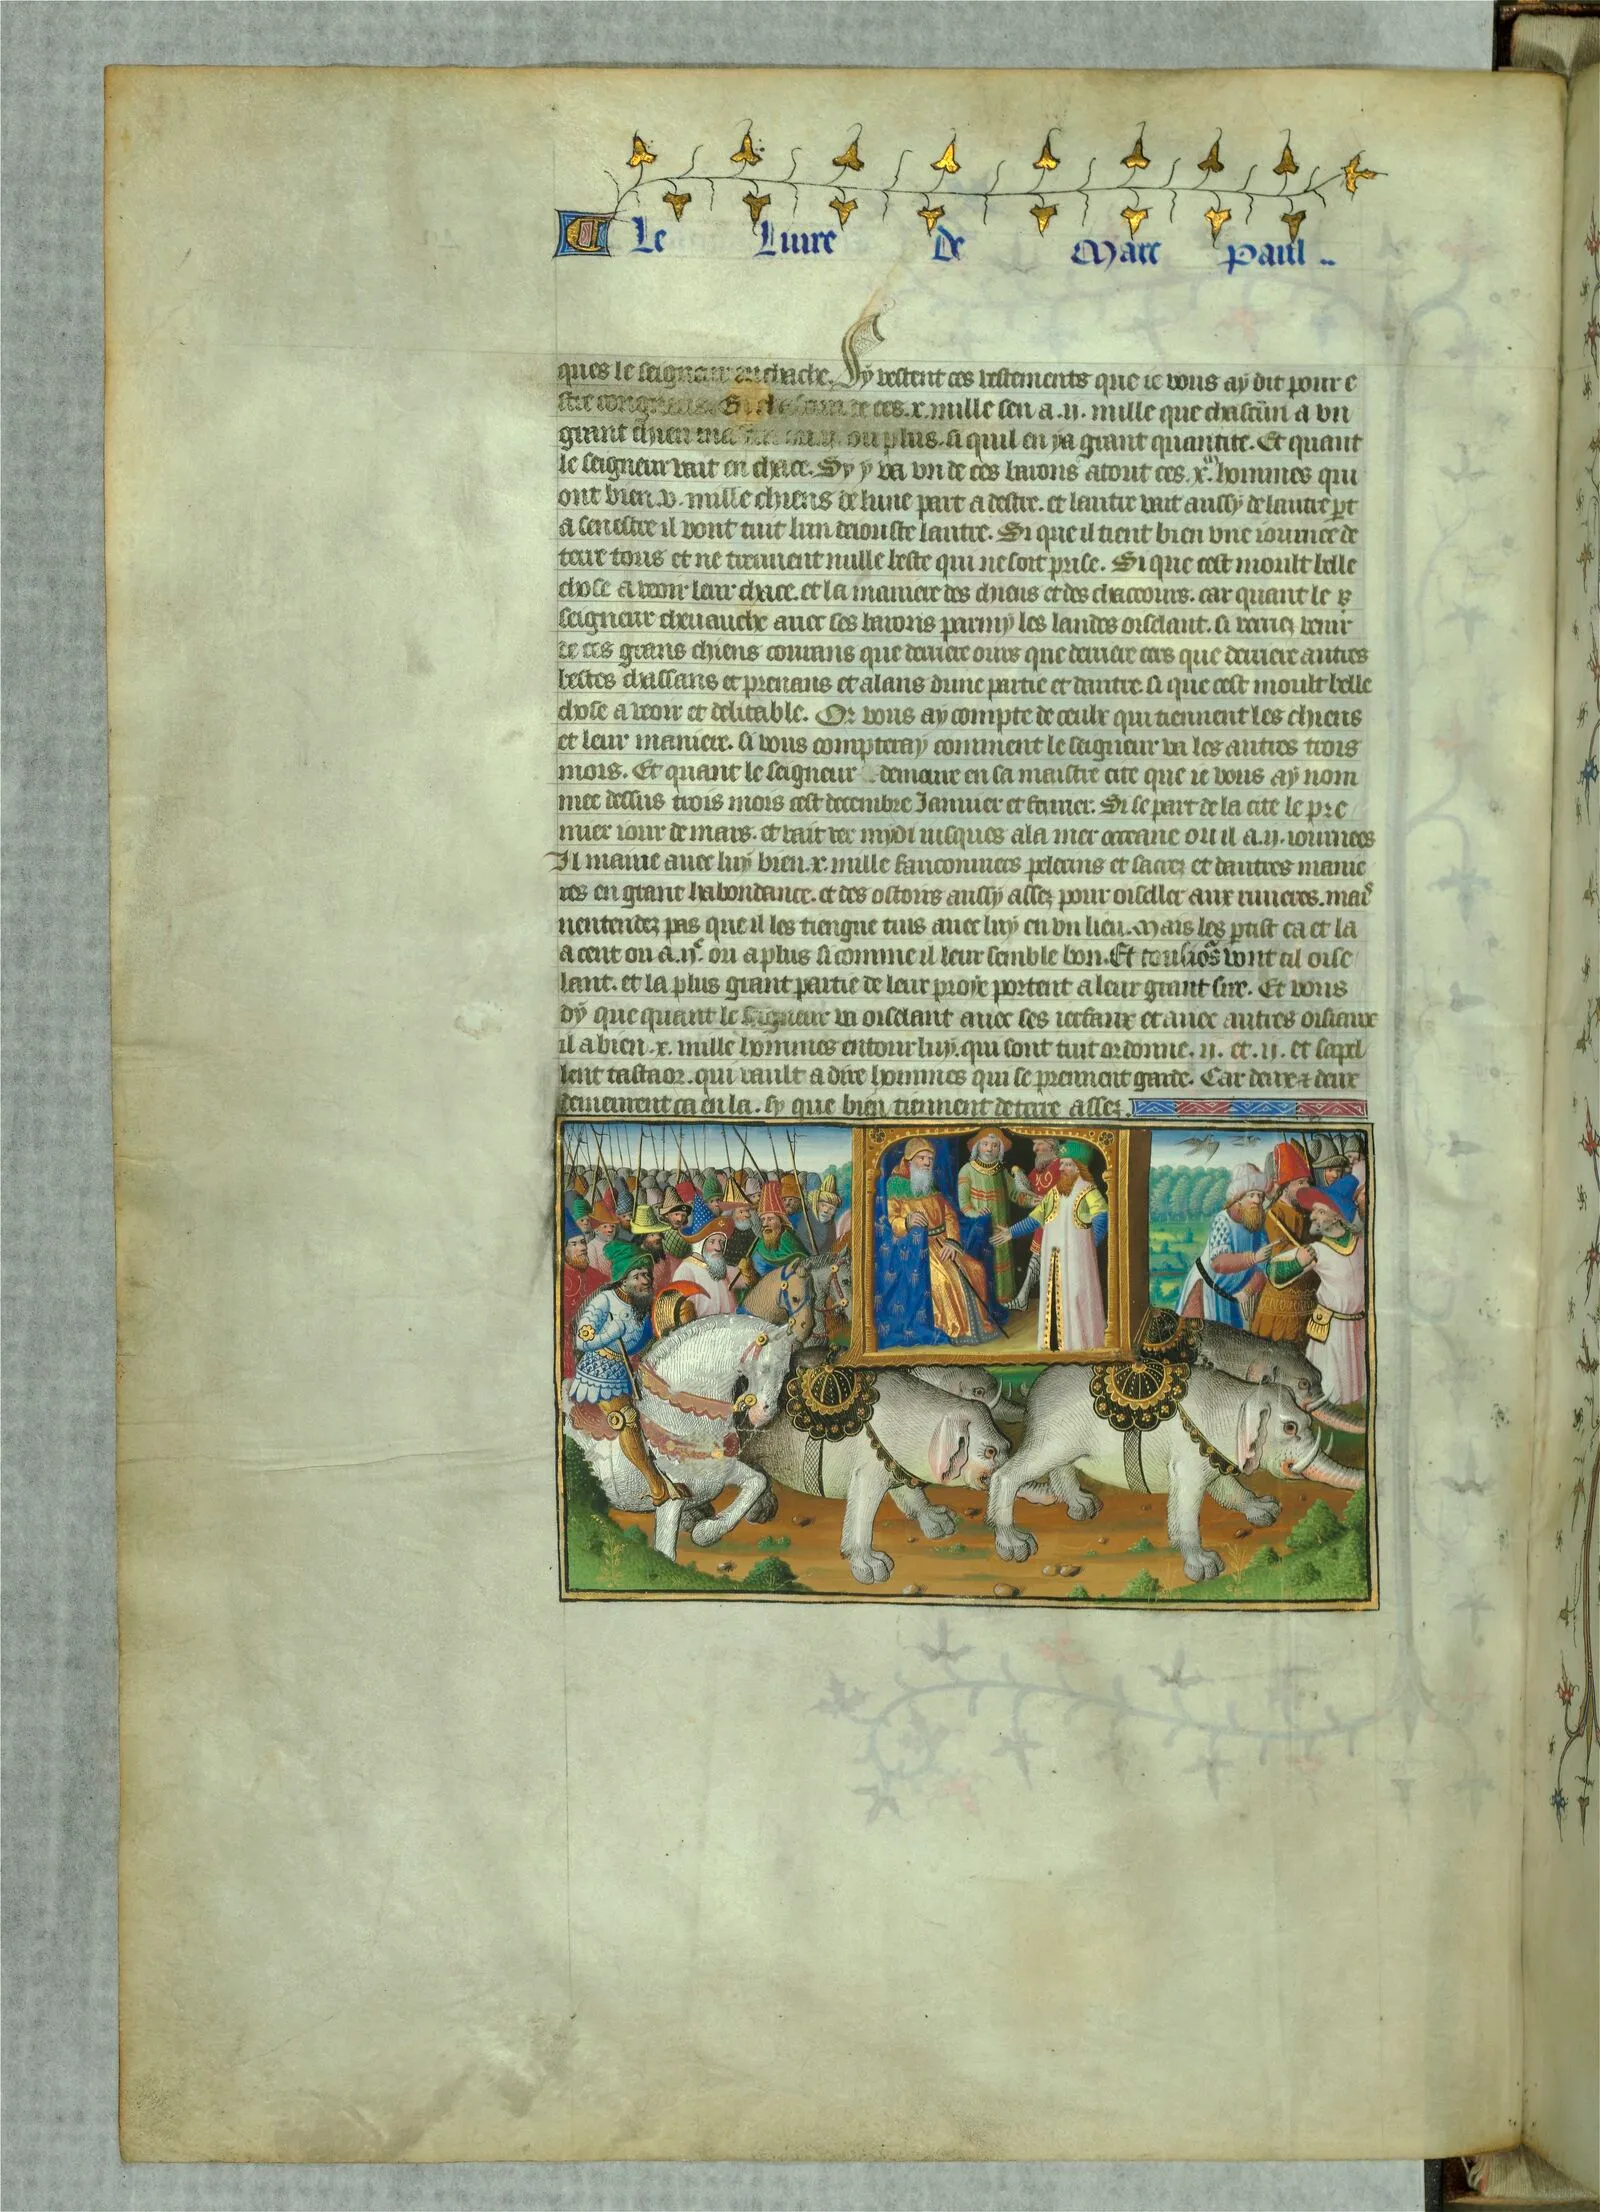 Le Liure de Marc Paul ..
ques le seigneur en chace. Sy vestent ces vestements que ie vous ay dit pour e
stre de ces .x. mille sen a .ii. mille que chascun a vn
grant chien ou .ii. ou plus. si quil en ya grant quantite. Et quant
le seigneur vait en chace. Sy y va vn de ces barons atout ces .x.m hommes qui
ont bien .v. mille chiens de lune part a destre. et lautre vait aussy de lautre pt
a senestre il vont tuit lun de iouste lautre. Si que il tient bien vne iournee de
terre tous et ne treuuent nulle beste qui ne soit prise. Si que cest moult belle
chose a veoir leur chace. et la maniere des chiens et des chaceours. car quant le
seigneur cheuauche auec ses barons parmy les landes oiselant. si verrez venir
de ces grans chiens courans que derriere ours que derriere cers que derriere autres
bestes chassans et prenans et alans dune partie et dautre. si que cest moult belle
chose a veoir et delitable. Or vous ay compte de ceulx qui tiennent les chiens
et leur maniere. si vous compteray comment le seigneur va les autres trois
mois. Et quant le seigneur demoure en sa maistre cite que ie vous ay nom
mee dessus trois mois cest decembre Januier et feurier. Si se part de la cite le pre
mier iour de mars. et vait ver mydi iusques ala mer occeane ou il a .ii. iournees
Il maine auec luy bien .x. mille fauconniers pelerins et sacrez et dautres manie
res en grant habondance. et des ostours aussy assez pour oiseller aux riuieres. mais
nentendez pas que il les tiengne tuis auec luy en vn lieu. Mais les ptist ca et la
a cent ou a .ii.c ou a plus si comme il leur semble bon. Et tousiors vont il oise
lant. et la plus grant partie de leur proye portent a leur grant sire. Et vous
dy que quant le seigneur va oiselant auec ses ierfaux et auec autres oisiaux
il a bien .x. mille hommes entour luy. qui sont tuit ordonne .ii. et .ii. et sapel
lent tastaor. qui vault a dire hommes qui se prennent garde. Car deux & deux
demeurent ca en la. sy que bien tiennent de terre assez.